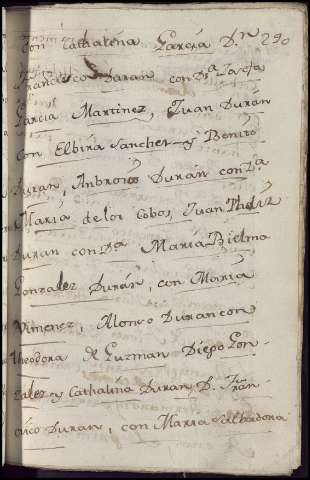 Con Cathalina Garcia D.ⁿ 290
Francisco Duran con D.ª
Garcia Martinez, Juan Durán
Con Elbira Sanchez y Benito
Duran, Anbrosio Durán con D.ª
Maria de los Cobos, Juan
Duran con D.ª Maria Bielma
Gonzalez Durán, con Maria
Ximenez, Alonso Duran con
Theodora de Guzman Diego Gon-
zalez y Cathalina Duran D. Fran-
cisco Duran, con Maria Salbadora